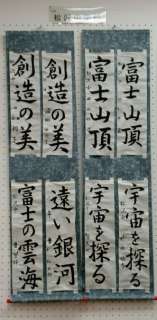 富士山頂
富士山頂
創造の美
創造の美
宇宙を探る
宇宙を探る
遠い銀河
富士の雲海